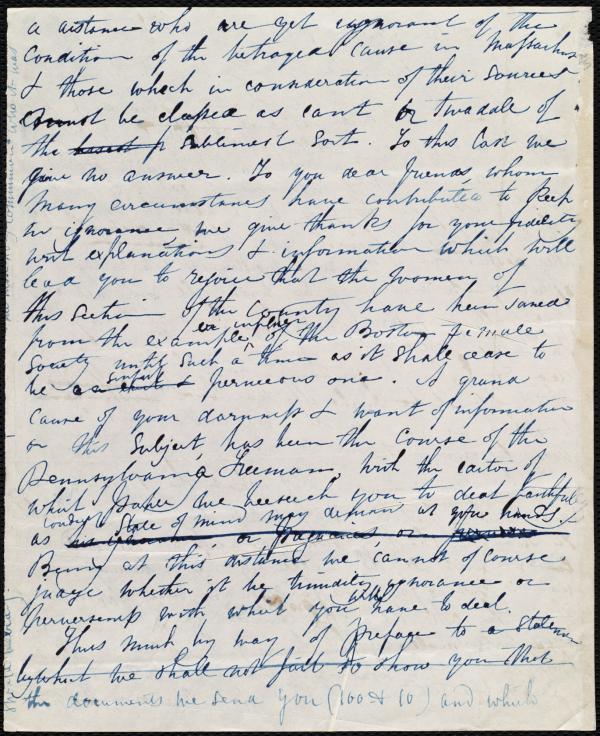 a distance who are yet ignorant of the
condition of the betrayed cause in Massachus
& those which in consideration of their sources
cannot be classed as cant or twaddle of
the basest sublimest sort. To this last we
give no answer. To you dear friends whom
many circumstances have contributed to keep
in ignorance, we give thanks for your fidelity
with explanations & information which will
lead you to rejoice that the women of
this section of the Country have been saved
from the example or influence of the Boston Female
Society until such a time as it shall cease to
be a sinful & pernicious one. A grand
cause of your darkness & want of information
on this subject, has been the course of the
Pennsylvania Freeman, with the editor of
which paper we beseech you to deal faithfully
as state of mind may demand at your hands
his ignorance, or
Being at this distance we cannot of course
judge whether it be timidity, ignorance or
perverseness with which you will have to deal.
Thus much by way of preface to a statem
by which we shall not fail to show you that
the documents we send you (100 & 10) and which